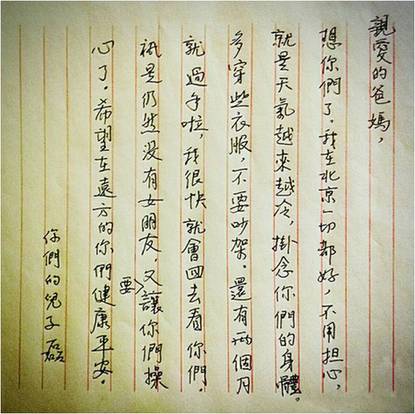 親愛的爸媽，
想你們了。我在北京一切都好，不用担心，
就是天氣越來越冷，掛念你們的身體。
多穿些衣服，不要吵架。還有兩個月
就過年啦，我很快就會回去看你們。
祗是仍然没有女朋友，又要讓你們操
心了。希望在遠方的你們健康平安。
你們的兒子 磊